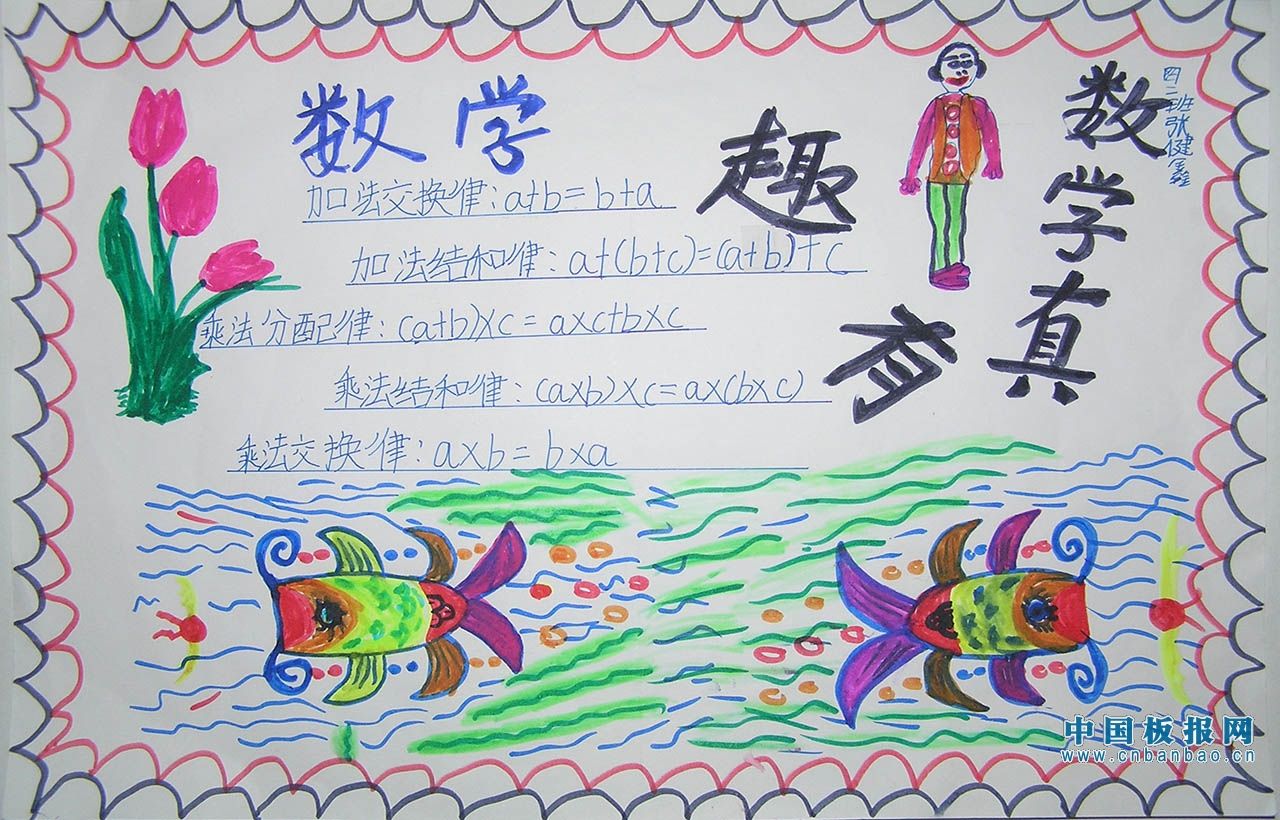 数学
加法交换律:a+b=b+a
加法结和律:a+(b+c)=(a+b)+c
乘法分配律:(a+b)×c=a×c+b×c
乘法结和律:(a×b)×c=a×(b×c)
乘法交换律:a×b=b×a
数学真
有趣
四二班张健鑫
中国板报网
www.cnbanbao.cn